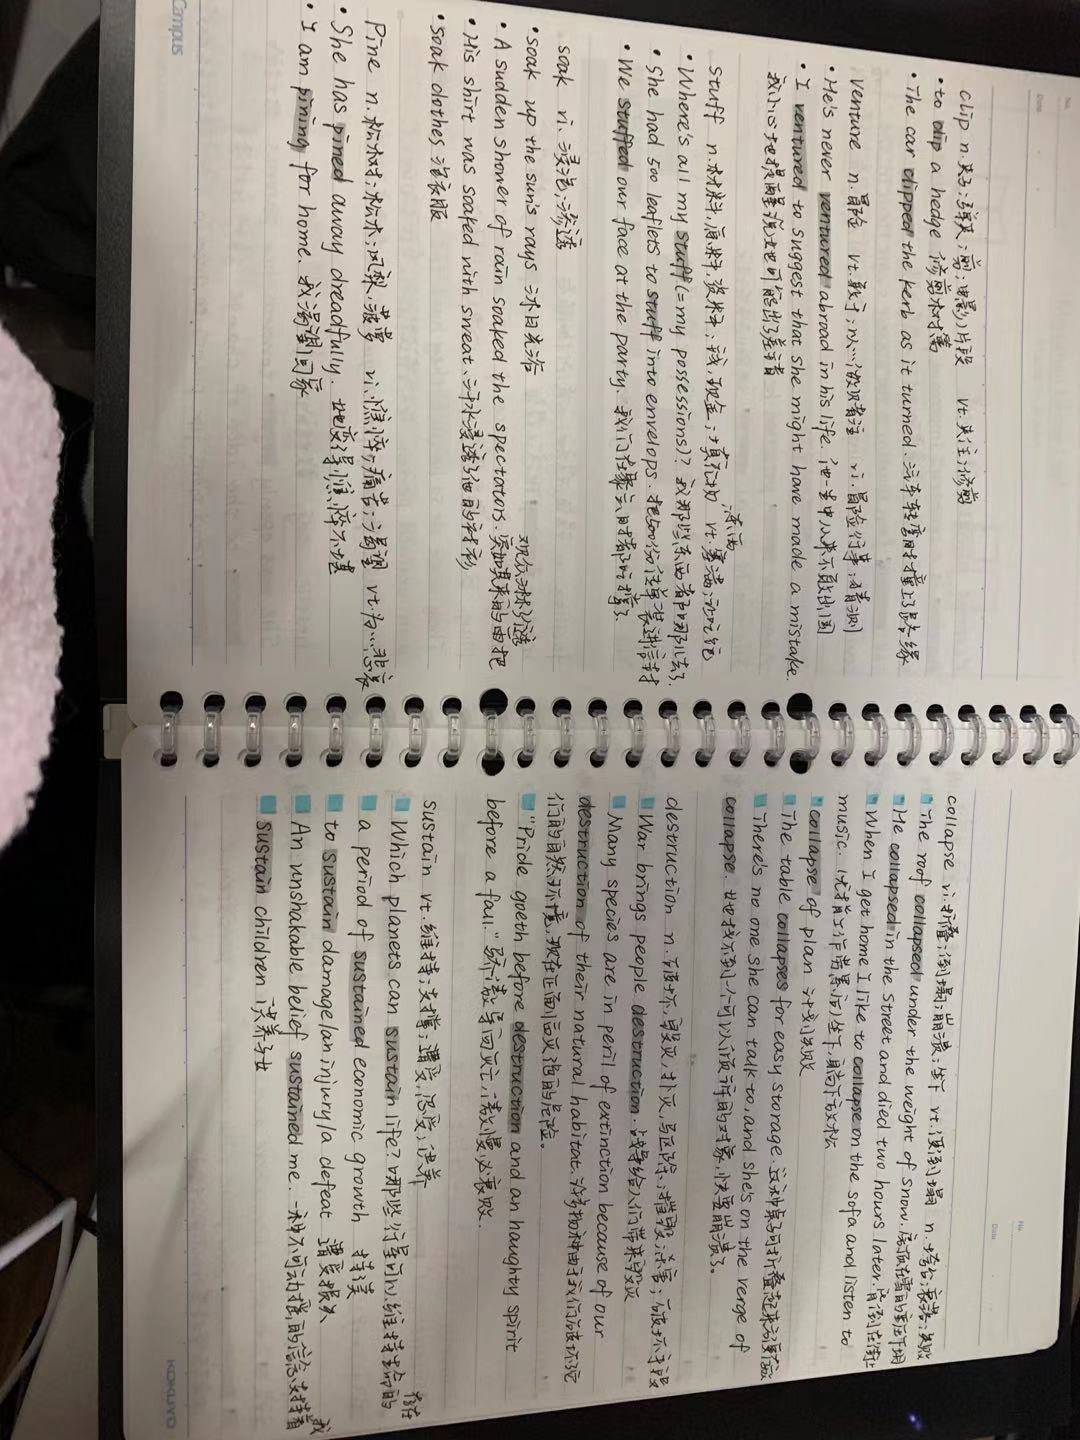 clip n.夹子;弹夹;剪;电影片段 vt.夹住;修剪
• to clip a hedge 修剪树篱
• The car clipped the kerb as it turned. 汽车转弯时撞上了路缘
venture n.冒险 vt.敢于;以…做赌注 vi.冒险行事;猜测
• He's never ventured abroad in his life. 他一生中从来不敢出国
• I ventured to suggest that she might have made a mistake.
我小心地提醒说她可能出了差错
stuff n.材料,原料,资料;钱,现金; vt.塞满;
• Where's all my stuff (= my possessions)? 我那些东西都哪儿去了.
• She had 500 leaflets to stuff into envelops.
• We stuffed our face at the party.
soak vi.浸泡;渗透
• soak up the sun's rays 沐日光浴
• A sudden shower of rain soaked the spectators. 突如其来的雨把
观众淋得湿透
• His shirt was soaked with sweat. 汗水浸透了他的衬衫
• soak clothes 泡衣服
Pine n.松树;松木;凤梨,菠萝 vi.憔悴,痛苦;渴望 vt.为…悲哀
• She has pined away dreadfully. 她变得憔悴不堪
• I am pining for home. 我渴望回家
Campus
collapse vi.折叠;倒塌;崩溃;坐下 vt.使倒塌 n.垮台;衰落;失败
The roof collapsed under the weight of snow.
He collapsed in the street and died two hours later.
When I get home I like to collapse on the sofa and listen to
music.
collapse of plan 计划失败
The table collapses for easy storage.
There's no one she can talk to, and she's on the verge of
collapse. 她找不到一个可以谈话的对象,快要崩溃了。
destruction n.破坏,毁灭,
War brings people destruction. 战争给人们带来毁灭
Many species are in peril of extinction because of our
destruction of their natural habitat. 许多物种由于我们破坏了它
们的自然环境,现在正面临灭绝的危险。
"Pride goeth before destruction and an haughty spirit
before a fall." 骄傲导向灭亡,傲慢必衰败.
sustain vt.维持;支撑;遭受;忍受;供养
Which planets can sustain life? 哪些行星可以维持生命的
a period of sustained economic growth 持续
to sustain damage/an injury/a defeat 遭受损失
An unshakable belief sustained me. 一种不可动摇的信念支持着
我
sustain children 供养子女
KOKUYO